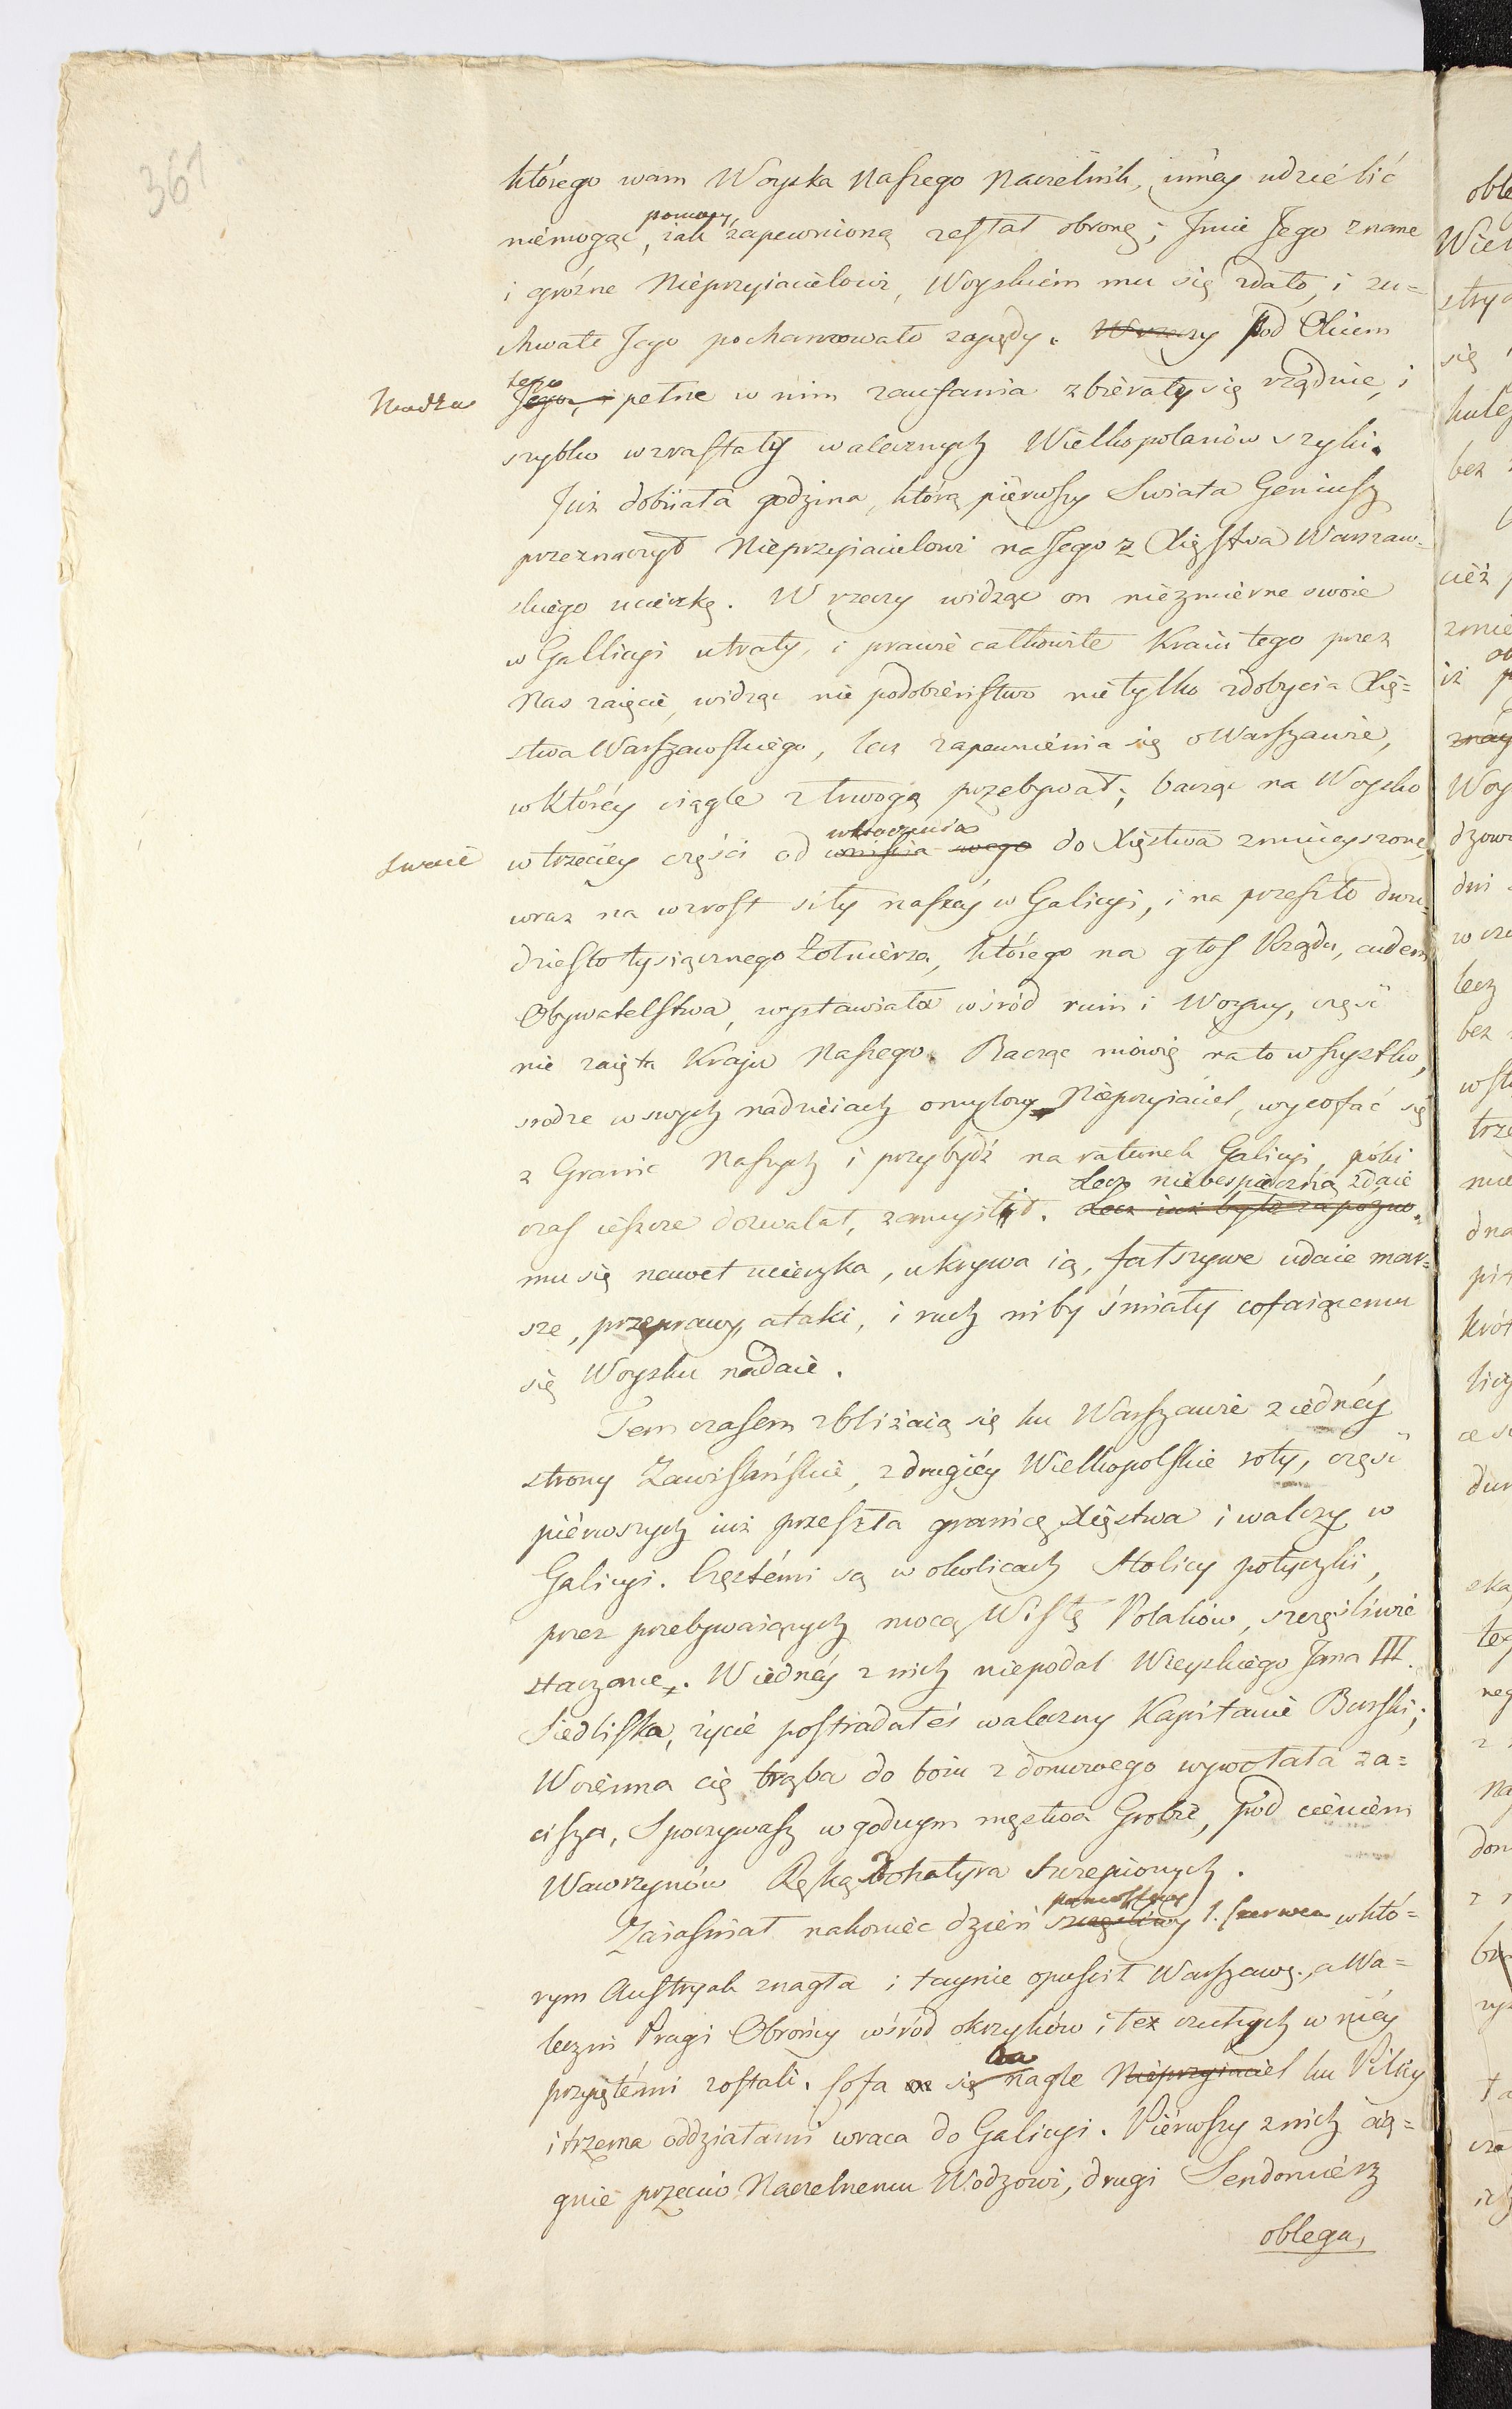 361
którego wam Woyska Naszego Naczelnik, inney udziélić
niémogąc pomocy, iak zapewnioną zostal obroną; Jmie Jego znane
i groźne Nieprzyiacielowi, Woyskiem mu się zdało, i zu=
chwałe Jego pochamowało zapędy. W rzeczy pod Okiem
tego Jego, i pełne w nim zaufania zbierały się rządnie, i
szybko wzrastały walecznych Wielkopolanów szyki.
Już dobiiała godzina, którą piérwszy Swiata Geniusz
przeznaczył Nieprzyiacielowi naszego z Xięstwa Warszaw=
skiego ucieczkę. W rzeczy widząc on niezmierne swoie
w Galliicyi utraty, i prawie całkowite Kraiu tego przez
Nas zaięcie, widząc nie podobieństwo nie tylko zdobycia Xię=
stwa Warszawskiego, lecz zapewnienia się o Warszawie,
w któréy ciągle z trwogą przebywał; bacząc na Woysko
swoie w trzeciéy części od wkroczenia wniścia swego do Xięstwa zmnieyszone,
wraz na wzrost siły naszéy w Galicyi, i na przeszło dwu=
dziesto tysiącznego Żołnierza, którego na głos Rządu, cudem
Obywatelstwa, wystawiała wśród ruin i Woyny, część
nie zaięta Kraju Naszego. Bacząc mówię na to wszystko,
srodze w swych nadzieiach omylony Nieprzyiaciel, wycofać się
z Granic Naszych i przybydź na ratunek Galicyi, póki
czas ieszcze dozwalał, zamyślił. Lecz niebespieczną zdaie Lecz iuż było za pózno.
mu się nawet ucieczka, ukrywa ią, fałszywe udaie mar=
sze, przeprawy, ataki, i ruch niby śmiały cofaiącemu
się Woysku nadaie.
Tem czasem zbliżaią się ku Warszawie z iednéy
strony Zawiślańskie, z drugiéy Wielkopolskie roty, część
piérwszych iuż przeszła granicę Xięstwa i walczy w
Galicyi. Częstémi są w okolicach Stolicy potyczki,
przez przebywaiących mocą Wisłę Polaków, szczęśliwie
staczane. W iednéy z nich niepodal Wieyskiego Jana III.
Siedliska, życie postradałeś waleczny Kapitanie Burski;
Woienna cię trąba do boiu z domowego wywołała za=
cisza, Spoczywasz w godnym męstwa Grobie, pod cieniem
Wawrzynów Ręką Bohatyra szczepionych.
Zaiaśniał nakoniec dzień pomyślny szczęśliwy 1. Czerwca w któ=
rym Austryak znagła i taynie opuścił Warszawę, a Wa=
leczni Pragi Obrońcy wśród okrzyków i łez czułych w niéy
przyiętémi zostali. Cofa się on nagle Nieprzyiaciel ku Pilicy
i trzema oddziałami wraca do Galicyi. Piérwszy z nich cią=
gnie przeciw Naczelnemu Wodzowi, drugi Sendomiérz
oblega,